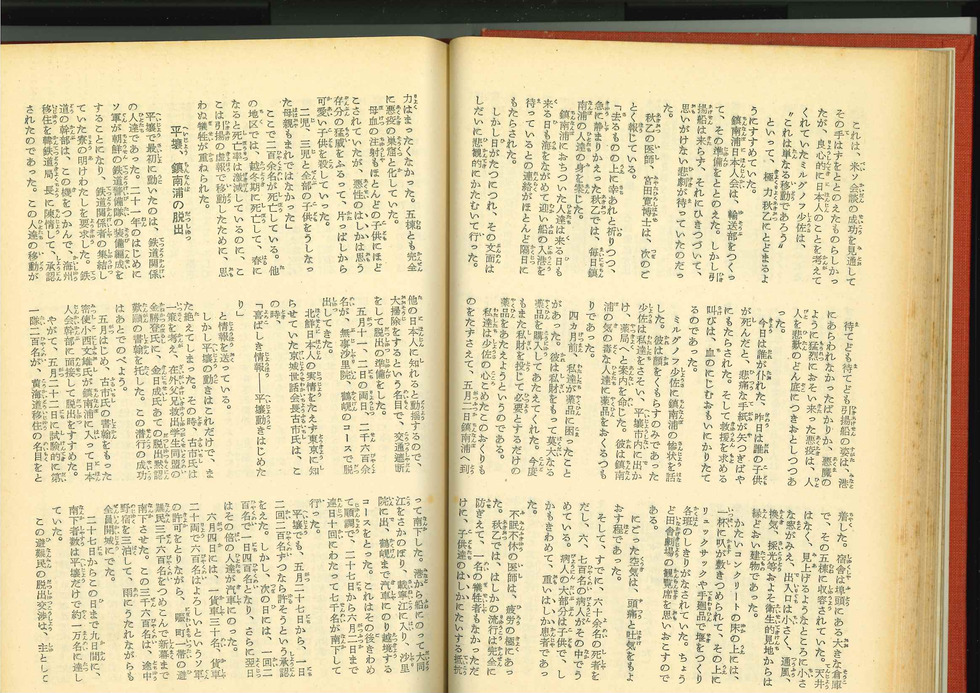 これは、米ソ会談の成功を見通して
その手はずをととのえたものらしかっ
たが、良心的に日本人のことを考えて
くれていたミルグノフ少佐は、
〝これは単なる移動であろう〟
といって、極力秋乙にとどまるよ
うにすすめていた。
鎮南浦日本人会は、輸送部をつくっ
て、その準備をととのえた。しかし引
揚船は来らず、それにひきつづいて、
思いがけない悲劇が待っていたのだっ
た。
秋乙の医師、宮田寛博士は、次のご
とく報じている。
「去るものの上に幸あれと祈りつつ、
急に静まりかえった秋乙では、毎日鎮
南浦の人達の身を案じた。
鎮南浦におちついた人達は来る日も
来る日も海をながめて迎い船の入港を
待っているとの連絡がほとんど隔日に
もたらされた。
しかし日がたつにつれ、その文面は
しだいに悲観的にかたむいて行った。
待てど待てども引揚船の姿は、港
にあらわれなかったばかりか、悪魔の
ように猛烈におそい来った悪疫は、人
人を悲歎のどん底につきおとしつつあ
った。
今日は誰が仆れた、昨日は誰の子供
が死んだと、悲痛な手紙が矢つぎばや
にもたらされた。そして救援を求める
叫びは、血のにじむおもいにかりたて
るのであった。
ミルグノフ少佐に鎮南浦の惨状を話
した。彼は顔をくもらすのみであった
少佐は私達をさそい、平壌市内に出か
け、薬局へと案内を命じた。彼は鎮南
浦の気の毒な人達に薬品をおくるつも
りであった。
四カ月前、私達が薬品に困ったこと
があった。彼は私財をもって莫大なる
薬品を購ってあたえてくれた。今度
もまた私財を投じて必要とするだけの
薬品をあたえようというのである。
私達は少佐の心こめたこのおくりも
のをたずさえて、五月二日鎮南浦へ到
着した。宿は埠頭にある大きな倉庫
で、その五棟に収容されていた。天井
はなく、見上げるようなところに小さ
な窓がみえ、出入口は小さく、通風、
換気、採光等およそ衛生的見地からは
縁どおい建物であった。
かたいコンクリートの床の上には、
一杯に叺が敷きつめられて、その上に
リュックサックや手廻品で堰をつくり
各班のしきりがなされていた。ちょう
ど田舎劇場の観覧席を思いおこすので
ある。
にごった空気は、頭痛と吐気をもよ
おす程であった。
そして、すでに、六十余名の死者を
だし、六、七百名の病人がその中でう
めている。病人の大部分は子供で、し
かもきわめて、重いはしか患者であっ
た。
不眠不休の医師は、疲労の極にあっ
た。秋乙では、はしかの流行は完全に
防ぎえて、一名の犠牲者もなかっただ
けに、子供達のはしかにたいする抵抗
力はまったくなかった。五棟とも完全
に悪疫の巣窟と化していた。
母血の注射もほとんどの子供にほど
こされていたが、悪性のはしかは思う
存分の猛威をふるって、片っぱしから
可愛い子供を殺して行った。
二児、三児と全部の子供をうしなっ
た母親もまれではなかった」
ここで二百余名が死亡している。他
の地区では、越冬期に死亡して、春に
なると死亡率は激減しているのに、こ
こは引揚の虚報で移動したために、思
わぬ犠牲が重ねられた。
平壌、鎮南浦の脱出
平壌で最初に動いたのは、鉄道関係
の人達であった。二十一年のはじめに
ソ軍が朝鮮の鉄道警備隊の装備編成を
することになり、鉄道関係者の集結し
ていた寮の明けわたしを要求した。鉄
道の幹部は、この機をつかんで、海州
移住を韓鉄道局長に陳情して、承認
されたのであった。この人達の移動が
他の日本人に知れると動揺するので、
大掃除をするという名目で、交通遮断
をして脱出の準備をした。
五月十一、二日の両日、二千六百余
名が、無事沙里院、鶴峴のコースで脱
出してきた。
北鮮日本人の実情をたえず東京に知
らせていた京城世話会長古市氏は、こ
の時、
「喜ばしき情報――平壌動きはじめた
り」
と情報を送っている。
しかし平壌の動きはこれだけで、ま
た絶えてしまった。その時、古市氏は
一策を考え、在外父兄救出学生同盟の
金勝登氏に、金日成氏あての脱出懇請
歎願の書翰を托した。この潜行の成功
はあとでのべよう。
五月はじめ、古市氏の書翰をもった
密使小西文雄氏が鎮南浦に入って日本
人会幹部に面接して脱出をすすめた。
やがて、五月二十二日に試験的に第
一隊二百名が、黄海道移住の名目をと
って南下した。港から船にのって大同
江をさかのぼり、載寧江に入り、沙里
院に出、鶴峴まで汽車にのり越境する
コースをとった。これはその後きわめ
て順調で、二十七日から六月五日まで
連日十回にわたって七千名が南下して
行った。
平壌でも、五月二十七日から、一日
二回、百名ずつなら許そうという承認
をえた。しかし、次の日には、一回二
百名で一日四百名となり、さらに翌日
はその倍の人達が汽車にのった。
六月四日には、一貨車三十名、貨車
二十両で六百名はよろしいというソ軍
の許可をとりながら、賑町一帯の避
難民三千六百名をつめこんで新幕まで
南下させた。この三千六百名は、途中
野宿を三泊して、雨にうたれながらも
全員開城にでた。
二十七日からこの日まで九日間に、
南下者数は平壌だけで約一万名に達し
ていた。
この避難民の脱出交渉は、主として